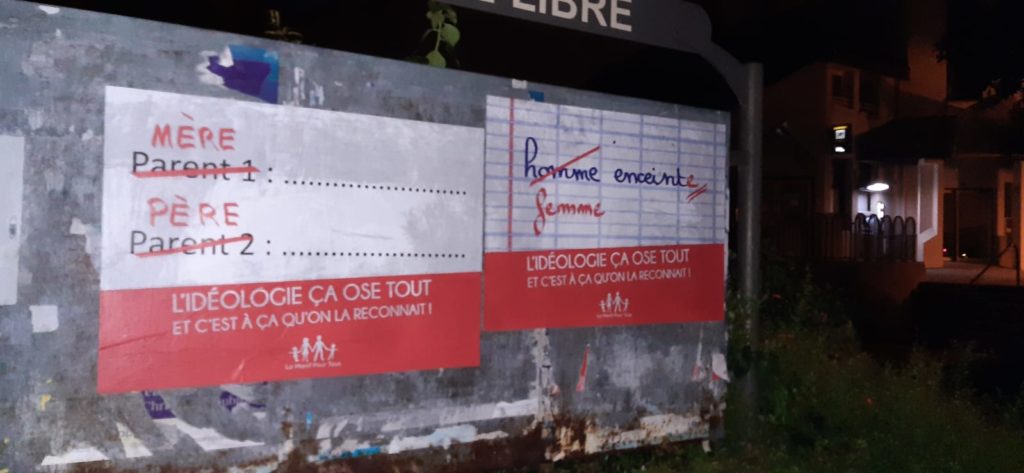 LIBRE
MÈRE
Parent 1 : ..............................
PÈRE
Parent 2 : ..............................
L'IDÉOLOGIE ÇA OSE TOUT
ET C'EST À ÇA QU'ON LA RECONNAIT !
La Manif Pour Tous
homme enceinte
femme
L'IDÉOLOGIE ÇA OSE TOUT
ET C'EST À ÇA QU'ON LA RECONNAIT !
La Manif Pour Tous